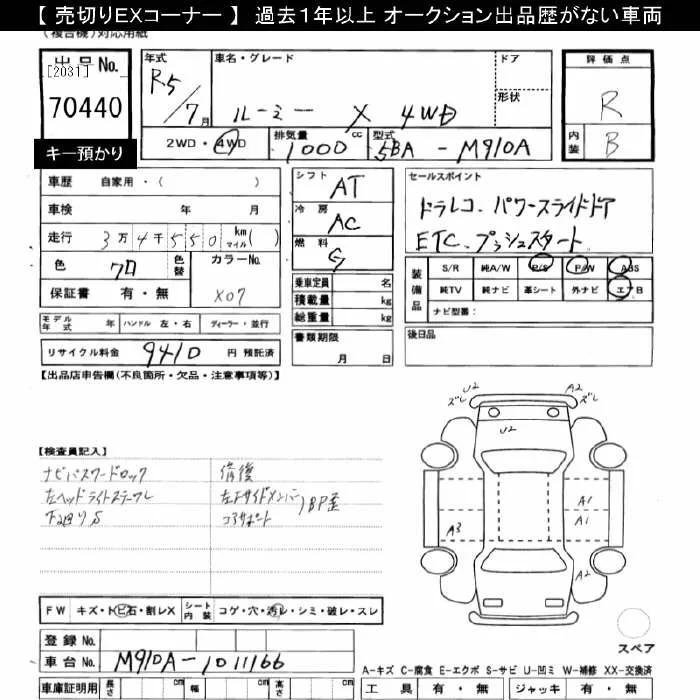 【 売切りEXコーナー 】 過去1年以上 オークション出品歴がない車両
(複合機)対応用紙
出品No.
[2031]
70440
キー預かり
年式
R5/7月
車名・グレード
ルーミー X 4WD
ドア
形状
2WD・4WD
排気量 1000 cc
型式 5BA - M910A
評価点
R
内装
B
車歴 自家用・( )
車検 年 月
走行 3万4千550 km マイル( )
色 クロ 色替
カラーNo. X07
保証書 有・無
シフト AT
冷房 AC
燃料 G
乗車定員 名
積載量 kg
総重量 kg
書類期限 月 日
セールスポイント
ドラレコ、パワースライドドア
ETC、プッシュスタート
装備品
S/R 純A/W P/S P/W ABS
純TV 純ナビ 革シート 外ナビ エアB
ナビ型番:
モデル年式 年 ハンドル 左・右 ディーラー・並行
リサイクル料金 9410 円 預託済
後日品
【出品店申告欄(不良箇所・欠品・注意事項等)】
【検査員記入】
ナビパスワードロック 修復
左ヘッドライトステークレ 左Fサイドメンバー)BP歪
下廻りS コアサポート
U2 ズレ
A2 ズレ
U2
A1
A1
A3
A2
スペア
FW キズ・トビ石・割レX シート内装 コゲ・穴・汚レ・シミ・破レ・スレ
登録No.
車台No. M910A-1011166
車庫証明用 長さ cm 幅 cm 高さ cm
A-キズ C-腐食 E-エクボ S-サビ U-凹ミ W-補修 XX-交換済
工具 有・無 ジャッキ 有・無